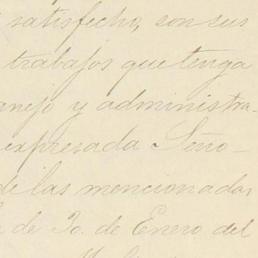 satisfecho, con sus
trabajos que tenga
anejo y administra-
expresada Seño-
de las mencionadas
de 30. de Enero del